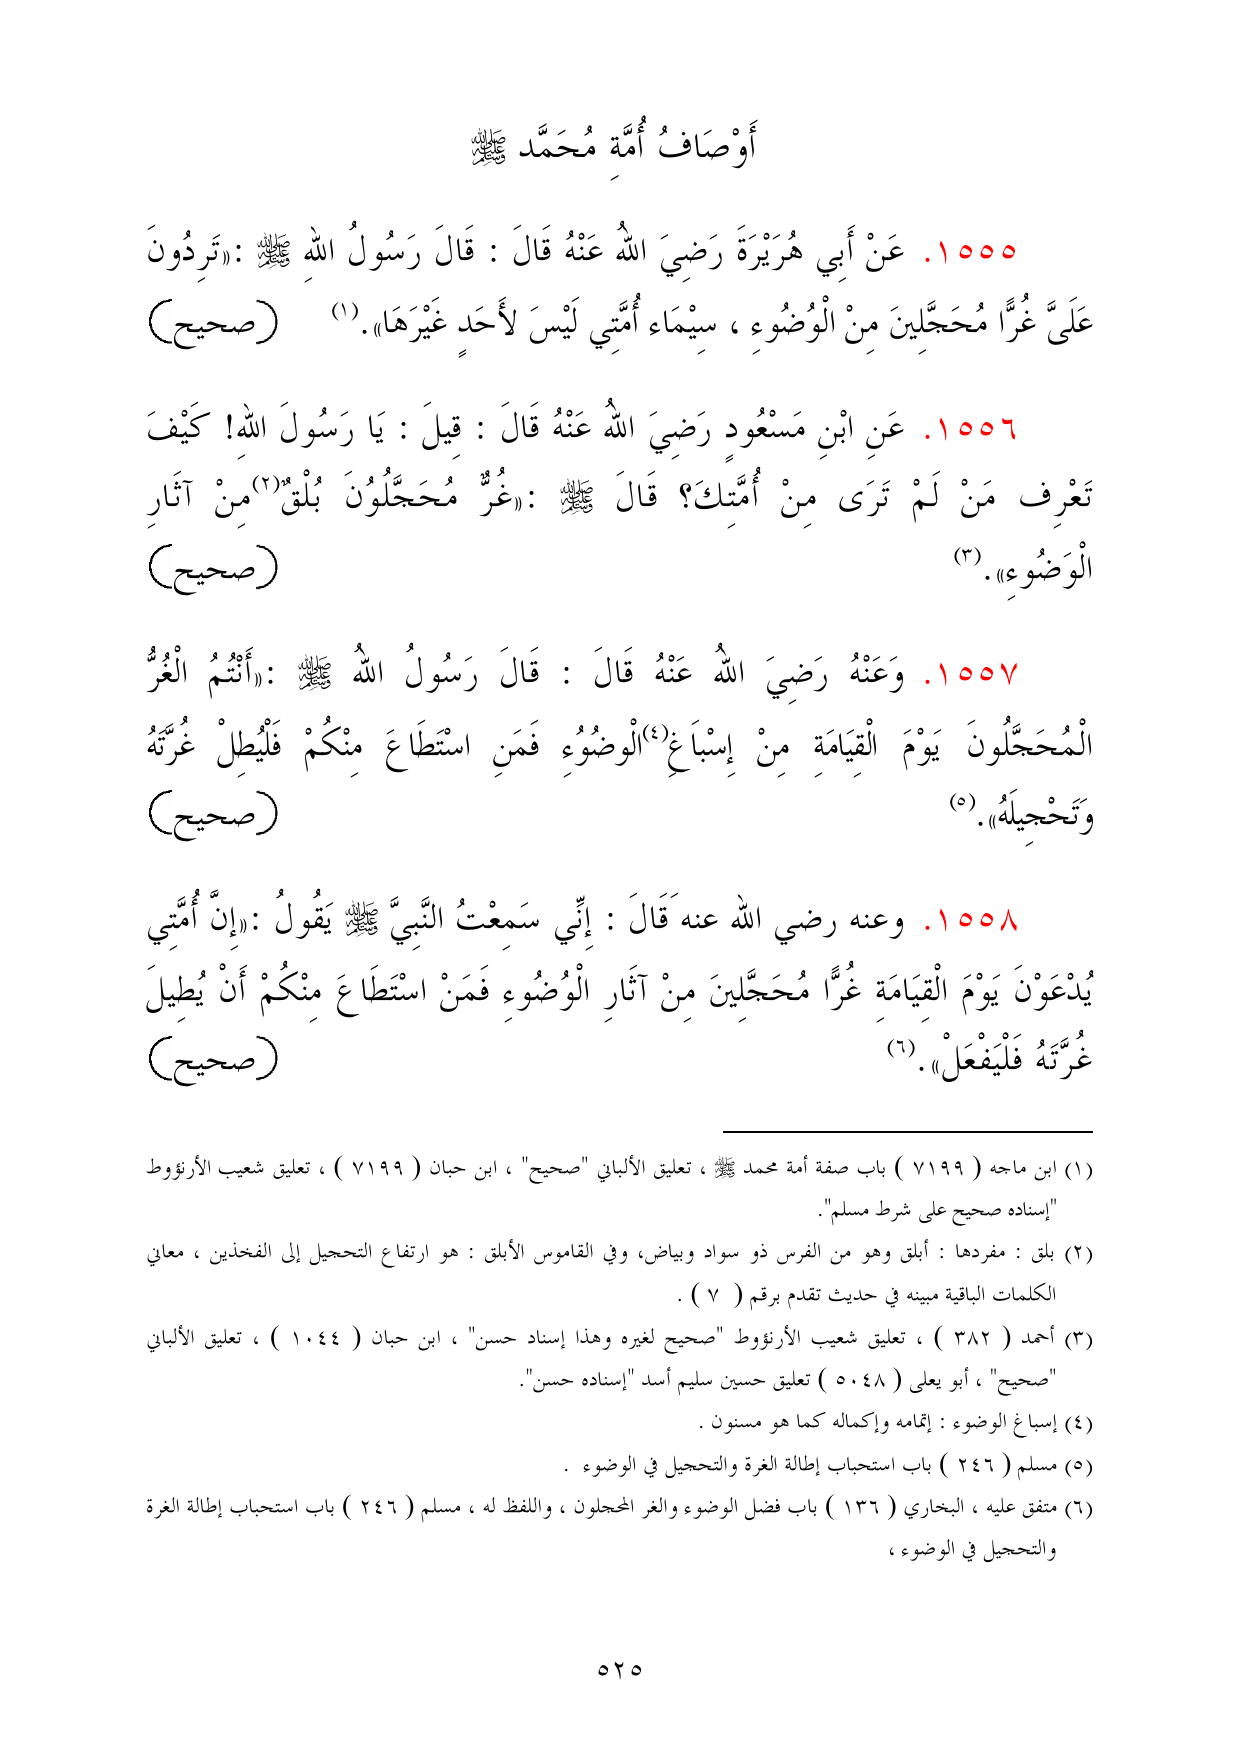 أَوْصَافُ أُمَّةِ مُحَمَّد ﷺ
١٥٥٥. عَنْ أَبِي هُرَيْرَةَ رَضِيَ اللهُ عَنْهُ قَالَ : قَالَ رَسُولُ اللهِ ﷺ :«تَرِدُونَ
عَلَىَّ غُرًّا مُحَجَّلِينَ مِنْ الْوُضُوءِ ، سِيْمَاء أُمَّتِي لَيْسَ لأَحَدٍ غَيْرَهَا».(١) (صحيح)
١٥٥٦. عَنِ ابْنِ مَسْعُودٍ رَضِيَ اللهُ عَنْهُ قَالَ : قِيلَ : يَا رَسُولَ اللهِ! كَيْفَ
تَعْرِف مَنْ لَمْ تَرَى مِنْ أُمَّتِكَ؟ قَالَ ﷺ :«غُرٌّ مُحَجَّلُوُنَ بُلْقٌ(٢)مِنْ آثَارِ
الْوَضُوءِ».(٣) (صحيح)
١٥٥٧. وَعَنْهُ رَضِيَ اللهُ عَنْهُ قَالَ : قَالَ رَسُولُ اللهُ ﷺ :«أَنْتُمُ الْغُرُّ
الْمُحَجَّلُونَ يَوْمَ الْقِيَامَةِ مِنْ إِسْبَاَغِ(٤)الْوضُوُءِ فَمَنِ اسْتَطَاعَ مِنْكُمْ فَلْيُطِلْ غُرَّتَهُ
وَتَحْجِيلَهُ».(٥) (صحيح)
١٥٥٨. وعنه رضي الله عنه قَالَ : إِنِّي سَمِعْتُ النَّبِيَّ ﷺ يَقُولُ :«إِنَّ أُمَّتِي
يُدْعَوْنَ يَوْمَ الْقِيَامَةِ غُرًّا مُحَجَّلِينَ مِنْ آثَارِ الْوُضُوءِ فَمَنْ اسْتَطَاعَ مِنْكُمْ أَنْ يُطِيلَ
غُرَّتَهُ فَلْيَفْعَلْ».(٦) (صحيح)
(١) ابن ماجه ( ٧١٩٩ ) باب صفة أمة محمد ﷺ ، تعليق الألباني "صحيح" ، ابن حبان ( ٧١٩٩ ) ، تعليق شعيب الأرنؤوط
"إسناده صحيح على شرط مسلم".
(٢) بلق : مفردها : أبلق وهو من الفرس ذو سواد وبياض، وفي القاموس الأبلق : هو ارتفاع التحجيل إلى الفخذين ، معاني
الكلمات الباقية مبينه في حديث تقدم برقم ( ٧ ) .
(٣) أحمد ( ٣٨٢ ) ، تعليق شعيب الأرنؤوط "صحيح لغيره وهذا إسناد حسن" ، ابن حبان ( ١٠٤٤ ) ، تعليق الألباني
"صحيح" ، أبو يعلى ( ٥٠٤٨ ) تعليق حسين سليم أسد "إسناده حسن".
(٤) إسباغ الوضوء : إتمامه وإكماله كما هو مسنون .
(٥) مسلم ( ٢٤٦ ) باب استحباب إطالة الغرة والتحجيل في الوضوء .
(٦) متفق عليه ، البخاري ( ١٣٦ ) باب فضل الوضوء والغر المحجلون ، واللفظ له ، مسلم ( ٢٤٦ ) باب استحباب إطالة الغرة
والتحجيل في الوضوء ،
٥٢٥